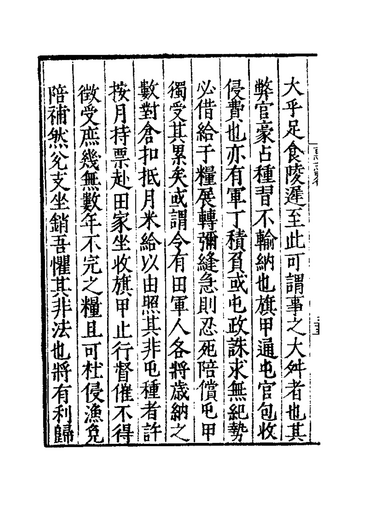 大乎足食陵遲至此可謂事之大舛者也其
弊官豪占種習不輸納也旗甲通屯官包收
侵費也亦有軍丁積負或屯政誅求無紀勢
必借給于糧展轉彌縫急則忍死陪償屯甲
獨受其累矣或謂今有田軍人各將歲納之
數對倉扣抵月米給以由照其非屯種者許
按月持票赴田家坐收旗甲止行督催不得
徵受庶幾無數年不完之糧且可杜侵漁免
陪補然允支坐銷吾懼其非法也將有利歸